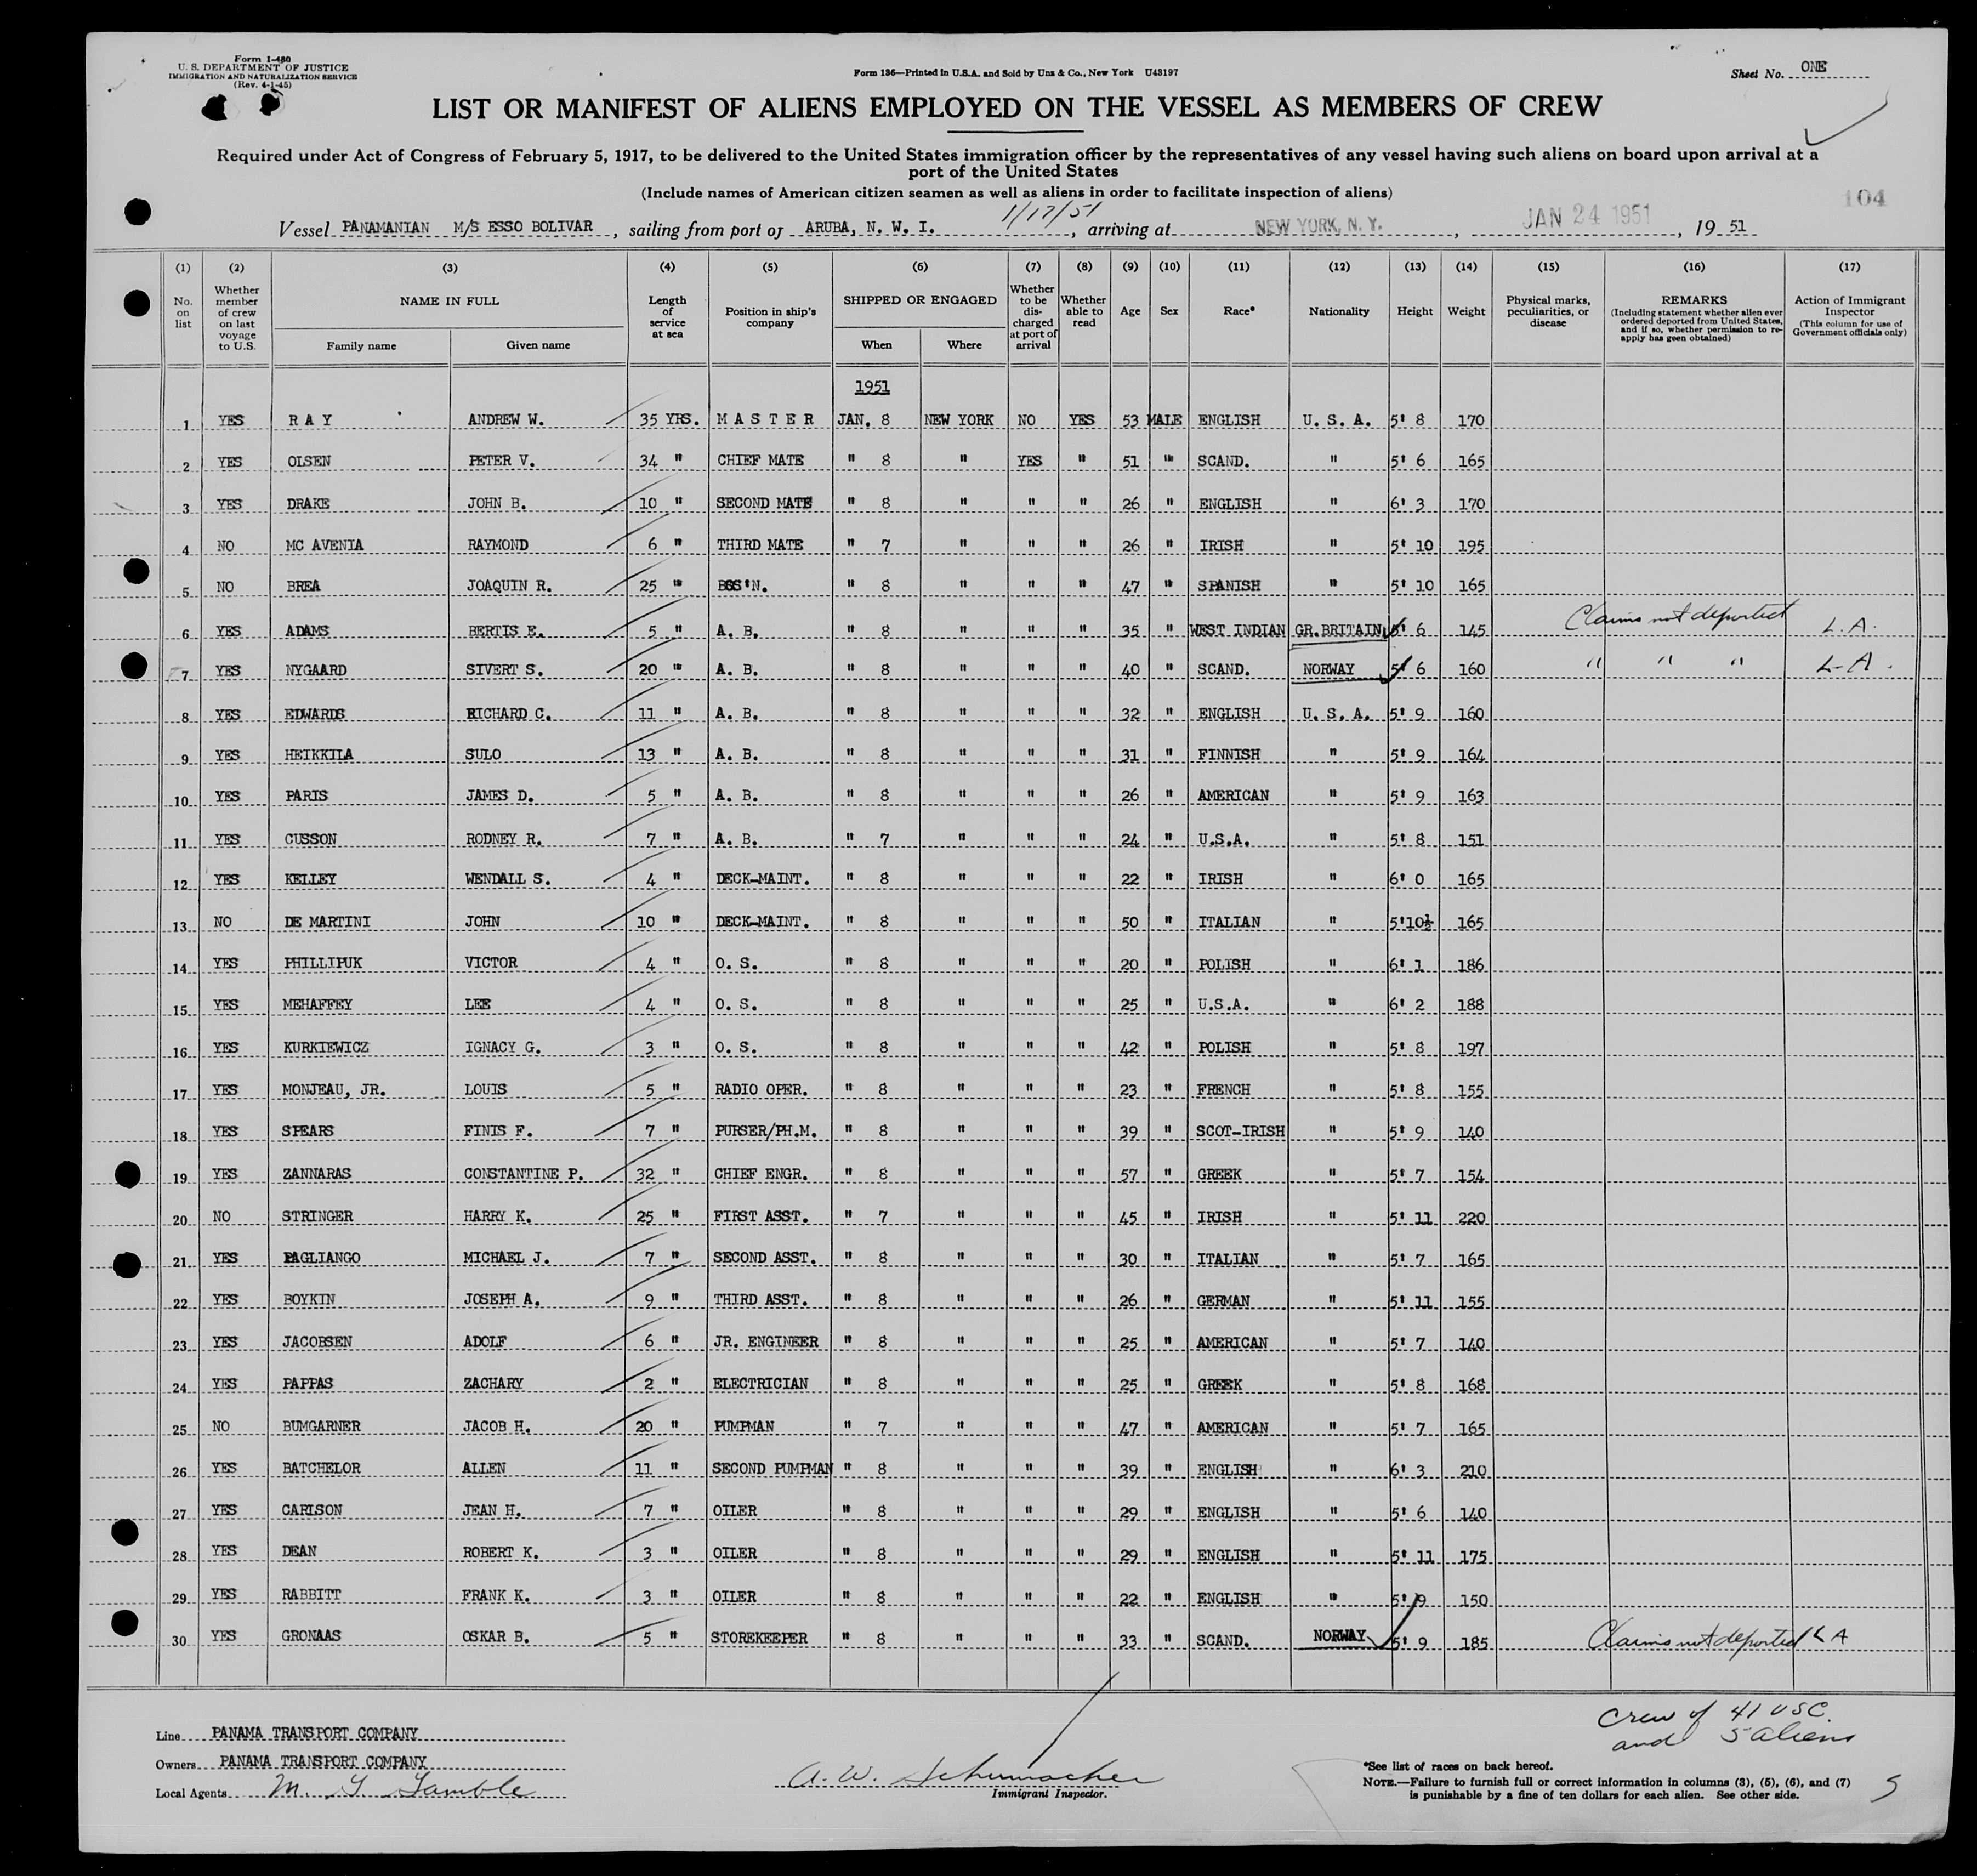 Form I-480
U. S. DEPARTMENT OF JUSTICE
IMMIGRATION AND NATURALIZATION SERVICE
(Rev. 4-1-45)
Form 136—Printed in U.S.A. and Sold by Unz & Co., New York U43197
Sheet No. ONE
LIST OR MANIFEST OF ALIENS EMPLOYED ON THE VESSEL AS MEMBERS OF CREW
Required under Act of Congress of February 5, 1917, to be delivered to the United States immigration officer by the representatives of any vessel having such aliens on board upon arrival at a
port of the United States
(Include names of American citizen seamen as well as aliens in order to facilitate inspection of aliens)
104
Vessel PANAMANIAN M/S ESSO BOLIVAR, sailing from port of ARUBA, N. W. I. 1/17/51, arriving at NEW YORK, N. Y., JAN 24 1951, 19 51
(1) (2) (3) (4) (5) (6) (7) (8) (9) (10) (11) (12) (13) (14) (15) (16) (17)
No. on list
Whether member of crew on last voyage to U.S.
NAME IN FULL
Family name
Given name
Length of service at sea
Position in ship's company
SHIPPED OR ENGAGED
When
Where
Whether to be discharged at port of arrival
Whether able to read
Age
Sex
Race*
Nationality
Height
Weight
Physical marks, peculiarities, or disease
REMARKS
(Including statement whether alien ever ordered deported from United States, and if so, whether permission to re-apply has geen obtained)
Action of Immigrant Inspector
(This column for use of Government officials only)
1951
1 YES R A Y ANDREW W. 35 YRS. M A S T E R JAN. 8 NEW YORK NO YES 53 MALE ENGLISH U. S. A. 5' 8 170
2 YES OLSEN PETER V. 34 " CHIEF MATE " 8 " YES " 51 " SCAND. " 5' 6 165
3 YES DRAKE JOHN B. 10 " SECOND MATE " 8 " " " 26 " ENGLISH " 6' 3 170
4 NO MC AVENIA RAYMOND 6 " THIRD MATE " 7 " " " 26 " IRISH " 5' 10 195
5 NO BREA JOAQUIN R. 25 " BOS'N. " 8 " " " 47 " SPANISH " 5' 10 165
6 YES ADAMS BERTIS E. 5 " A. B. " 8 " " " 35 " WEST INDIAN GR.BRITAIN 5' 6 145 Claims not deported L.A.
7 YES NYGAARD SIVERT S. 20 " A. B. " 8 " " " 40 " SCAND. NORWAY 5' 6 160 " " " L-A.
8 YES EDWARDS RICHARD C. 11 " A. B. " 8 " " " 32 " ENGLISH U. S. A. 5' 9 160
9 YES HEIKKILA SULO 13 " A. B. " 8 " " " 31 " FINNISH " 5' 9 164
10 YES PARIS JAMES D. 5 " A. B. " 8 " " " 26 " AMERICAN " 5' 9 163
11 YES CUSSON RODNEY R. 7 " A. B. " 7 " " " 24 " U.S.A. " 5' 8 151
12 YES KELLEY WENDALL S. 4 " DECK-MAINT. " 8 " " " 22 " IRISH " 6' 0 165
13 NO DE MARTINI JOHN 10 " DECK-MAINT. " 8 " " " 50 " ITALIAN " 5'10½ 165
14 YES PHILLIPUK VICTOR 4 " O. S. " 8 " " " 20 " POLISH " 6' 1 186
15 YES MEHAFFEY LEE 4 " O. S. " 8 " " " 25 " U.S.A. " 6' 2 188
16 YES KURKIEWICZ IGNACY G. 3 " O. S. " 8 " " " 42 " POLISH " 5' 8 197
17 YES MONJEAU, JR. LOUIS 5 " RADIO OPER. " 8 " " " 23 " FRENCH " 5' 8 155
18 YES SPEARS FINIS F. 7 " PURSER/PH.M. " 8 " " " 39 " SCOT-IRISH " 5' 9 140
19 YES ZANNARAS CONSTANTINE P. 32 " CHIEF ENGR. " 8 " " " 57 " GREEK " 5' 7 154
20 NO STRINGER HARRY K. 25 " FIRST ASST. " 7 " " " 45 " IRISH " 5' 11 220
21 YES PAGLIANGO MICHAEL J. 7 " SECOND ASST. " 8 " " " 30 " ITALIAN " 5' 7 165
22 YES BOYKIN JOSEPH A. 9 " THIRD ASST. " 8 " " " 26 " GERMAN " 5' 11 155
23 YES JACOBSEN ADOLF 6 " JR. ENGINEER " 8 " " " 25 " AMERICAN " 5' 7 140
24 YES PAPPAS ZACHARY 2 " ELECTRICIAN " 8 " " " 25 " GREEK " 5' 8 168
25 NO BUMGARNER JACOB H. 20 " PUMPMAN " 7 " " " 47 " AMERICAN " 5' 7 165
26 YES BATCHELOR ALLEN 11 " SECOND PUMPMAN " 8 " " " 39 " ENGLISH " 6' 3 210
27 YES CARLSON JEAN H. 7 " OILER " 8 " " " 29 " ENGLISH " 5' 6 140
28 YES DEAN ROBERT K. 3 " OILER " 8 " " " 29 " ENGLISH " 5' 11 175
29 YES RABBITT FRANK K. 3 " OILER " 8 " " " 22 " ENGLISH " 5' 9 150
30 YES GRONAAS OSKAR B. 5 " STOREKEEPER " 8 " " " 33 " SCAND. NORWAY 5' 9 185 Claims not deported L A
Crew of 41 USC.
and 5 aliens
Line PANAMA TRANSPORT COMPANY
Owners PANAMA TRANSPORT COMPANY
Local Agents M. G. Gamble
A. W. Schumacher
Immigrant Inspector.
*See list of races on back hereof.
NOTE.—Failure to furnish full or correct information in columns (3), (5), (6), and (7)
is punishable by a fine of ten dollars for each alien. See other side.
5